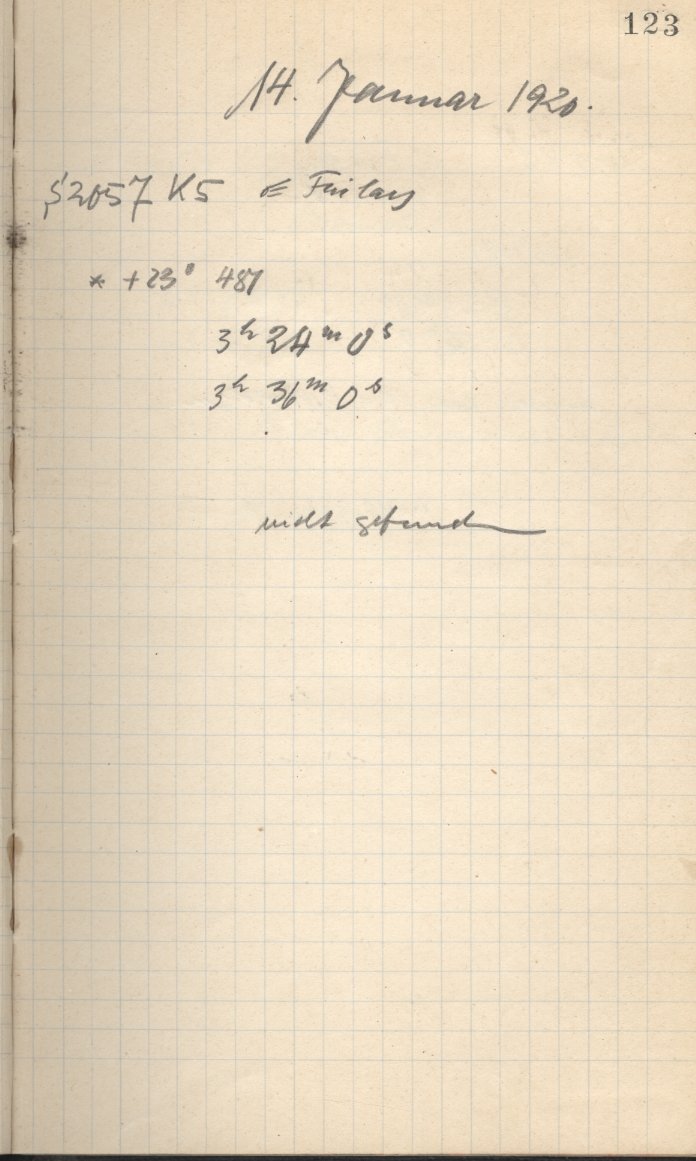 123
14. Januar 1920.
2057 K5 Finlay
* +23° 487
3ʰ 24ᵐ 0ˢ
3ʰ 36ᵐ 0ˢ
nicht gefunden